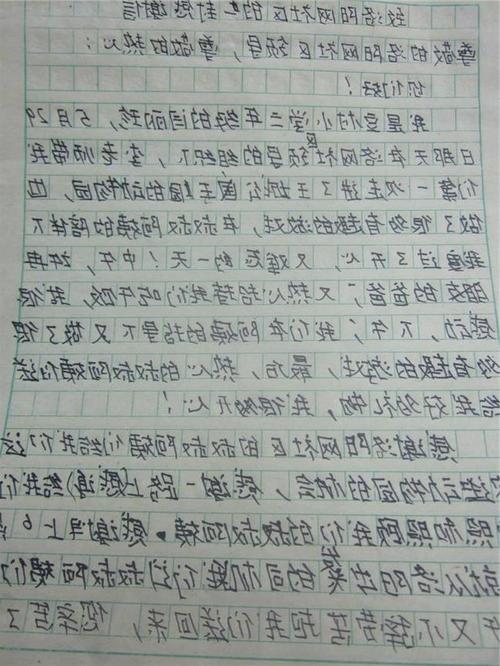 致洛阳网社区的一封感谢信
尊敬的洛阳网社区领导、尊敬的热心:
你们好!
我是空村小学二年级的闫丽珍,5月29
日那天在洛网社区领导的组织下、李老师带我
们第一次走进了王城公园王国的动物园、
做了很多有趣的游戏、在叔叔阿姨的陪伴下
我渡过了开心、又难忘的一天!中午、
朋友的爸爸、又热心陪着我们吃午饭、我很
感动、下午、我们在阿姨的指导下又做了很
多有趣的游戏、最后、热心的叔叔阿姨们送
给我好多礼物、我很开心!
感谢洛阳网社区的叔叔阿姨们给我们这
进动物园的机会、感谢一路上给我们
照和照顾我们的叔叔阿姨.感谢早上6
就从洛阳出来的叔叔阿姨们
午又不辞苦把我们送回来、你辛苦了